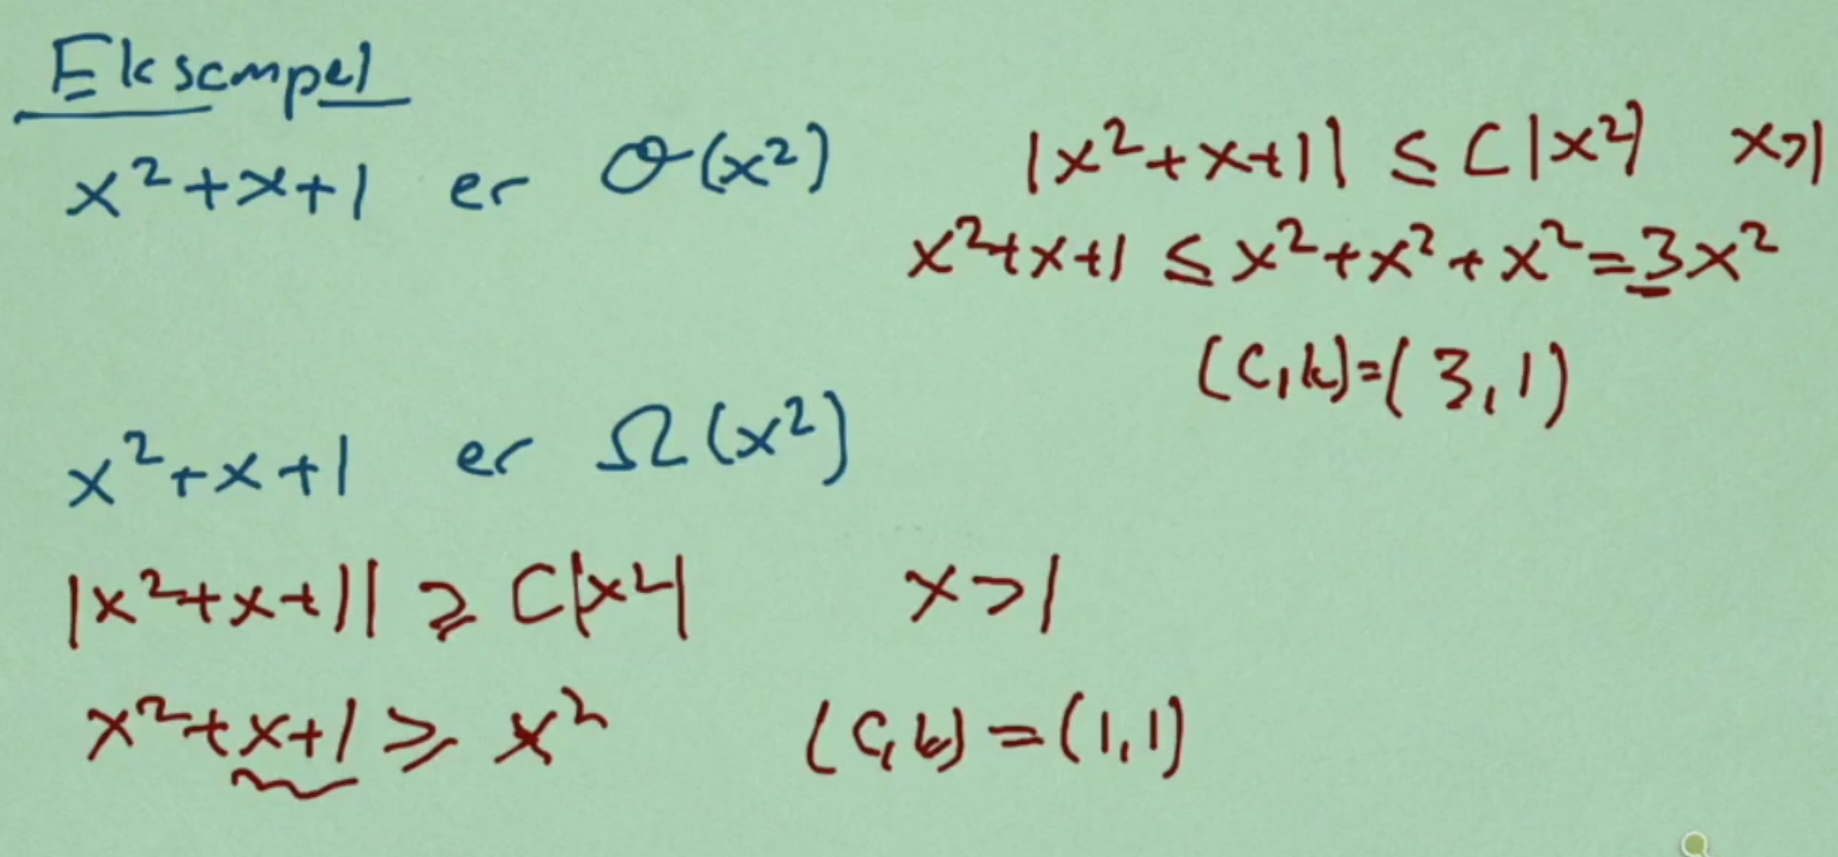 Eksempel
x²+x+1 er O(x²)
|x²+x+1| ≤ C|x²| x>1
x²+x+1 ≤ x²+x²+x²=3x²
(C,k)=(3,1)
x²+x+1 er Ω(x²)
|x²+x+1| ≥ C|x²| x>1
x²+x+1 ≥ x² (C,k)=(1,1)